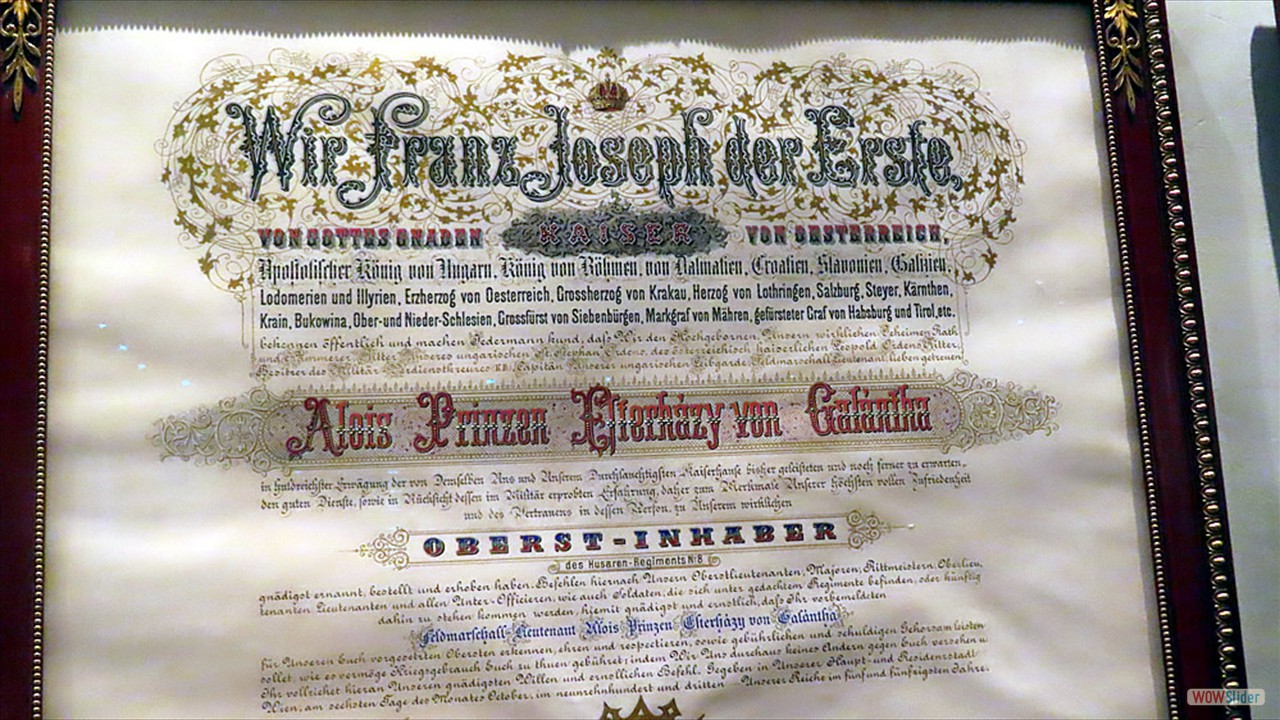 Wir Franz Joseph der Erste,
VON GOTTES GNADEN KAISER VON OESTERREICH,
Apostolischer König von Ungarn, König von Böhmen, von Dalmatien, Croatien, Slavonien, Galizien,
Lodomerien und Illyrien, Erzherzog von Oesterreich, Grossherzog von Krakau, Herzog von Lothringen, Salzburg, Steyer, Kärnthen,
Krain, Bukowina, Ober-und Nieder-Schlesien, Grossfürst von Siebenbürgen, Markgraf von Mähren, gefürsteter Graf von Habsburg und Tirol, etc.
bekennen öffentlich und machen Jedermann kund, daß Wir den Hochgebornen, Unsern wirklichen Geheimen Rath
und Kämmerer, Ritter Unseres ungarischen St. Stephan Ordens, des österreichisch kaiserlichen Leopold Ordens Ritter,
Besitzer des Militär Verdienstkreuzes, Capitän Unserer ungarischen Leibgarde, Feldmarschall Lieutenant, lieben getreuen
Alois Prinzen Esterházy von Galántha
in huldreichster Erwägung der von Demselben Uns und Unserem Durchlauchtigsten Kaiserhause bisher geleisteten und noch ferner zu erwarten-
den guten Dienste, sowie in Rücksicht dessen im Militär erprobten Erfahrung, daher zum Merkmale Unserer höchsten vollen Zufriedenheit
und des Vertrauens in dessen Person, zu Unserem wirklichen
OBERST-INHABER
des Husaren-Regiments № 8
gnädigst ernannt, bestellt und erhoben haben. Befehlen hiernach Unsern Oberstlieutenanten, Majoren, Rittmeistern, Oberlieu-
tenanten Lieutenanten und allen Unter-Officieren, wie auch Soldaten, die sich unter gedachtem Regimente befinden, oder künftig
dahin zu stehen kommen werden, hiemit gnädigst und ernstlich, daß Ihr vorbemeldeten
Feldmarschall-Lieutenant Alois Prinzen Esterházy von Galántha
für Unseren Euch vorgesetzten Obersten erkennen, ehren und respectieren, sowie gebührlichen und schuldigen Gehorsam leisten
sollet, wie es vermöge Kriegsgebrauch Euch zu thuen gebühret; indem Wir Uns durchaus keines Andern gegen Euch versehen u
Ihr vollziehet hieran Unseren gnädigsten Willen und ernstlichen Befehl. Gegeben in Unserer Haupt-und Residenzstadt
Wien, am sechsten Tage des Monates October, im neunzehnhundert und dritten Unserer Reiche im fünf und fünfzigsten Jahre.
WOWSlider